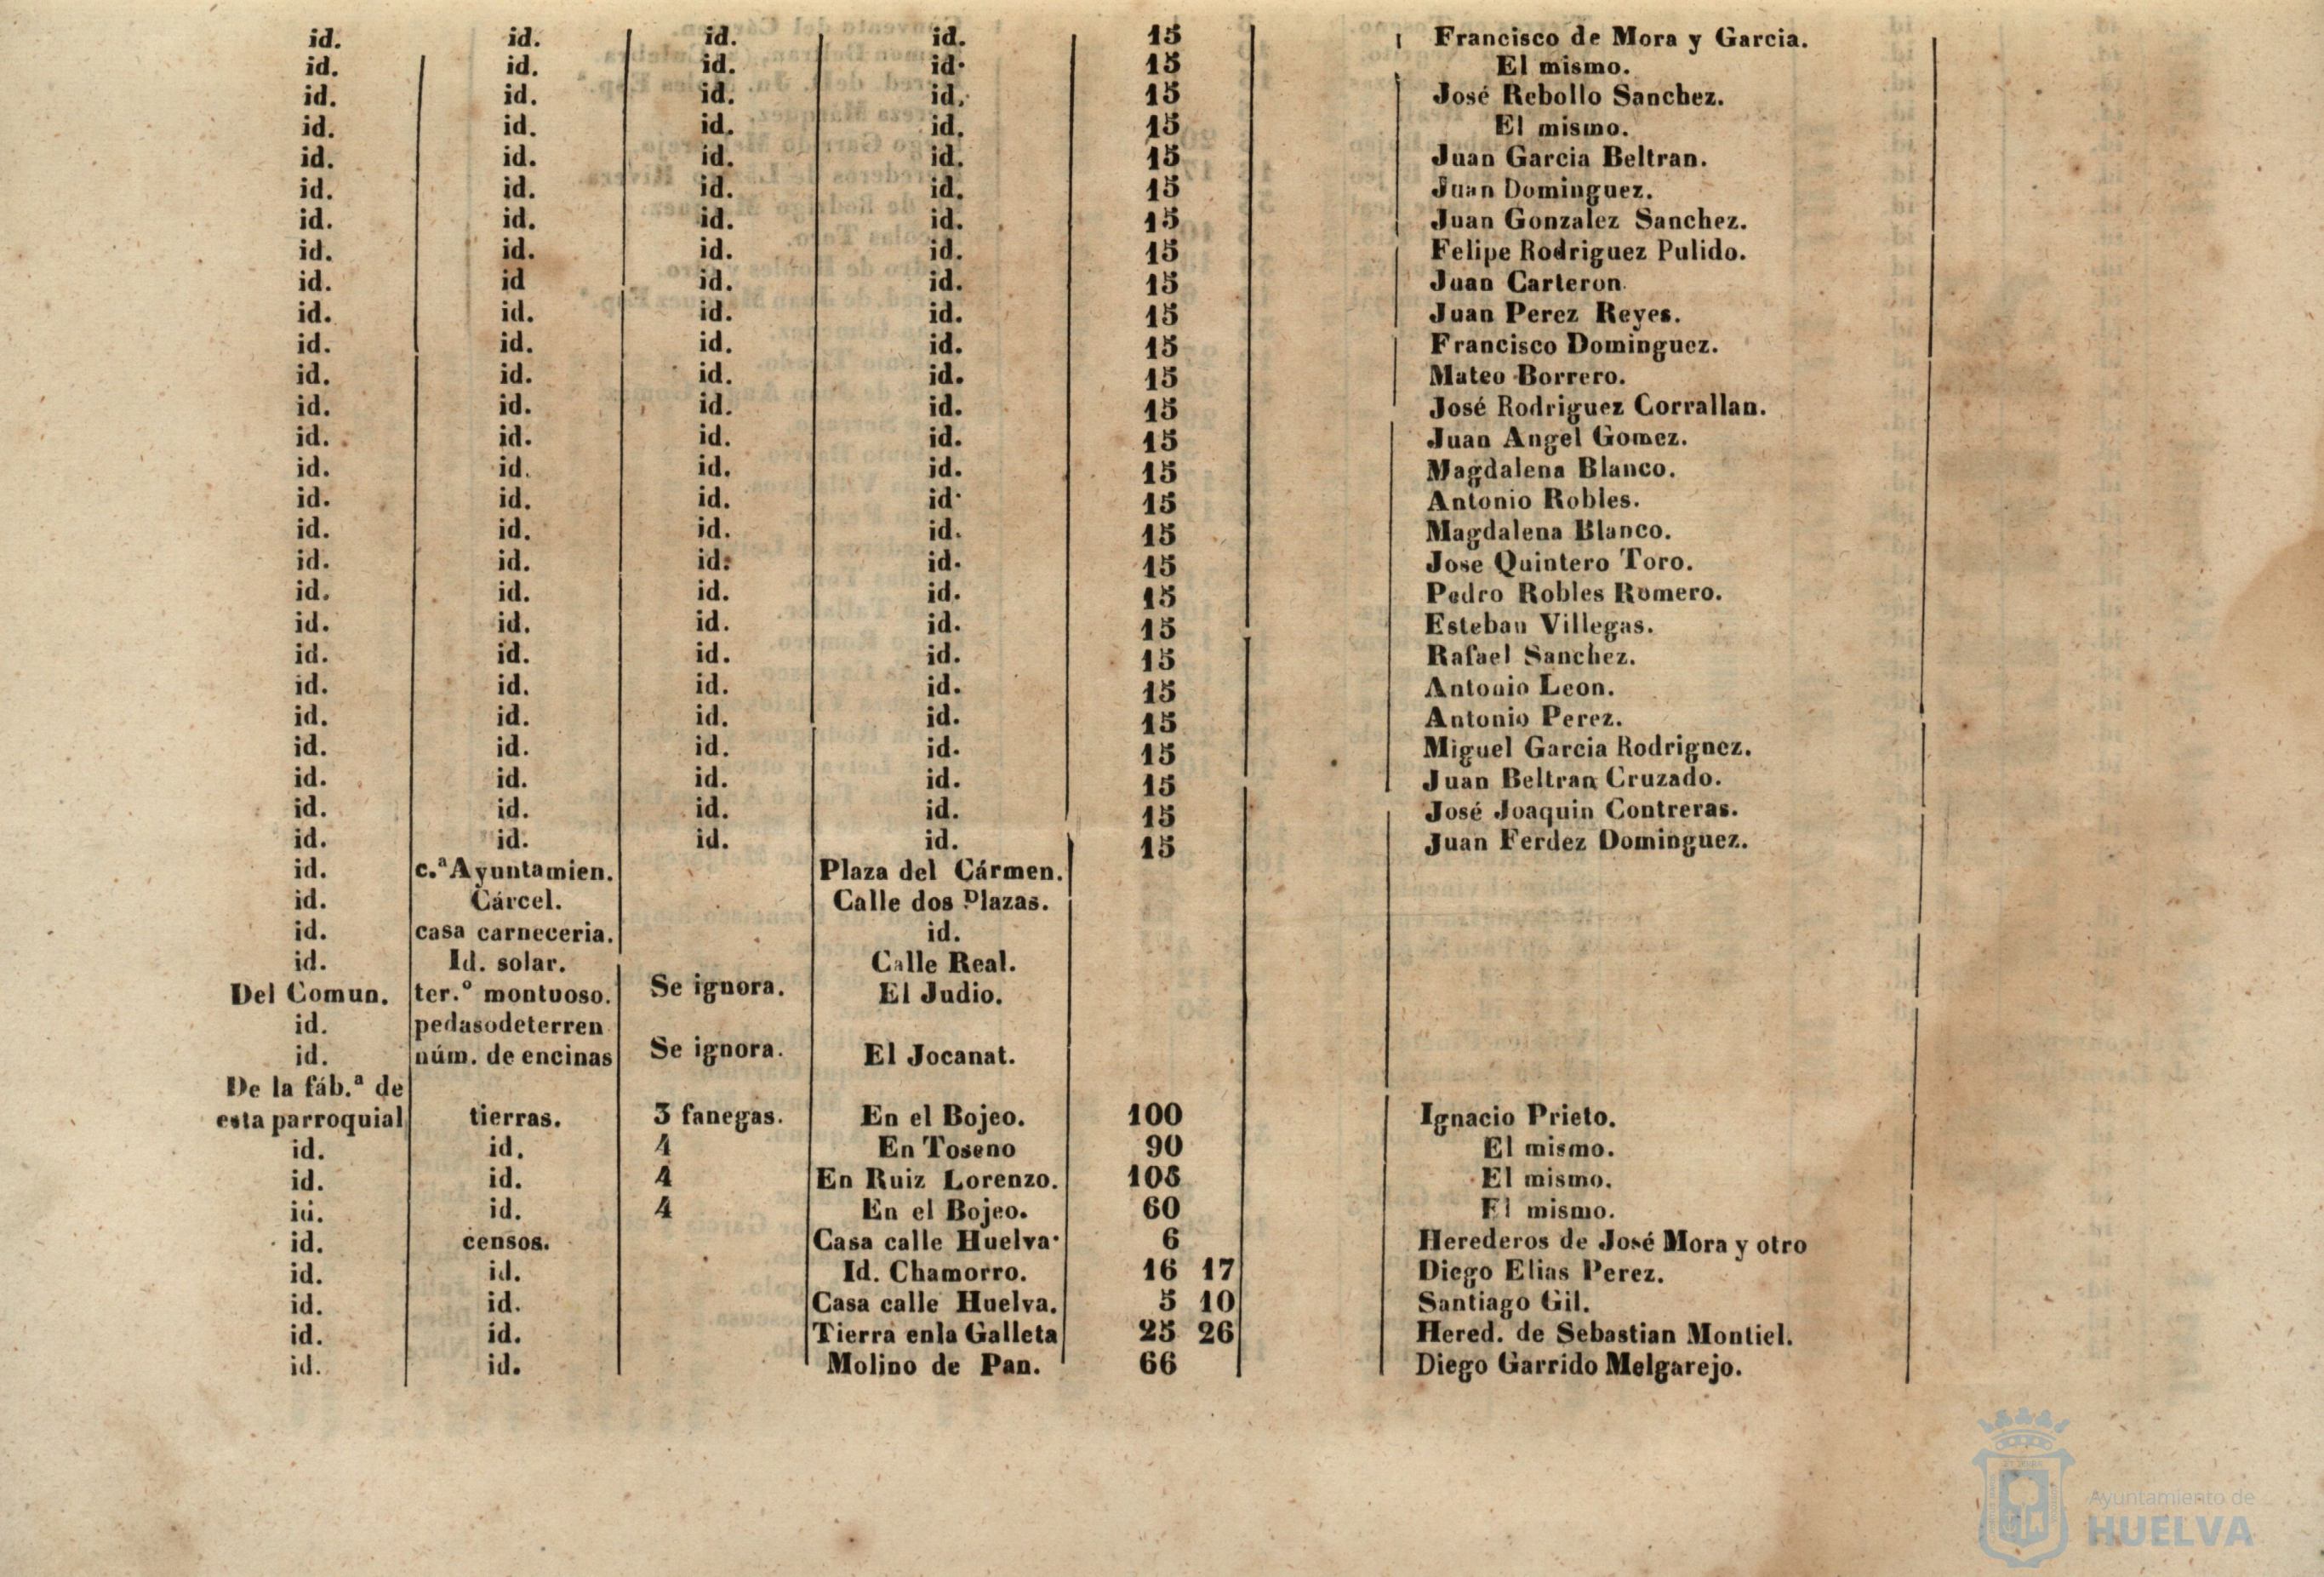 id. id. id. id. 15 Francisco de Mora y Garcia.
id. id. id. id. 15 El mismo.
id. id. id. id. 15 José Rebollo Sanchez.
id. id. id. id. 15 El mismo.
id. id. id. id. 15 Juan Garcia Beltran.
id. id. id. id. 15 Juan Dominguez.
id. id. id. id. 15 Juan Gonzalez Sanchez.
id. id. id. id. 15 Felipe Rodriguez Pulido.
id. id id. id. 15 Juan Carteron.
id. id. id. id. 15 Juan Perez Reyes.
id. id. id. id. 15 Francisco Dominguez.
id. id. id. id. 15 Mateo Borrero.
id. id. id. id. 15 José Rodriguez Corrallan.
id. id. id. id. 15 Juan Angel Gomez.
id. id. id. id. 15 Magdalena Blanco.
id. id. id. id. 15 Antonio Robles.
id. id. id. id. 15 Magdalena Blanco.
id. id. id. id. 15 Jose Quintero Toro.
id. id. id. id. 15 Pedro Robles Romero.
id. id. id. id. 15 Esteban Villegas.
id. id. id. id. 15 Rafael Sanchez.
id. id. id. id. 15 Antonio Leon.
id. id. id. id. 15 Antonio Perez.
id. id. id. id. 15 Miguel Garcia Rodrignez.
id. id. id. id. 15 Juan Beltran Cruzado.
id. id. id. id. 15 José Joaquin Contreras.
id. id. id. id. 15 Juan Ferdez Dominguez.
id. c.ª Ayuntamien. Plaza del Cármen.
id. Cárcel. Calle dos Plazas.
id. casa carneceria. id.
id. Id. solar. Calle Real.
Del Comun. ter.º montuoso. Se ignora. El Judio.
id. pedasodeterren
id. núm. de encinas Se ignora. El Jocanat.
De la fáb.ª de
esta parroquial tierras. 3 fanegas. En el Bojeo. 100 Ignacio Prieto.
id. id. 4 En Toseno 90 El mismo.
id. id. 4 En Ruiz Lorenzo. 105 El mismo.
id. id. 4 En el Bojeo. 60 El mismo.
id. censos. Casa calle Huelva. 6 Herederos de José Mora y otro
id. id. Id. Chamorro. 16 17 Diego Elias Perez.
id. id. Casa calle Huelva. 5 10 Santiago Gil.
id. id. Tierra enla Galleta 25 26 Hered. de Sebastian Montiel.
id. id. Molino de Pan. 66 Diego Garrido Melgarejo.
Ayuntamiento de
HUELVA